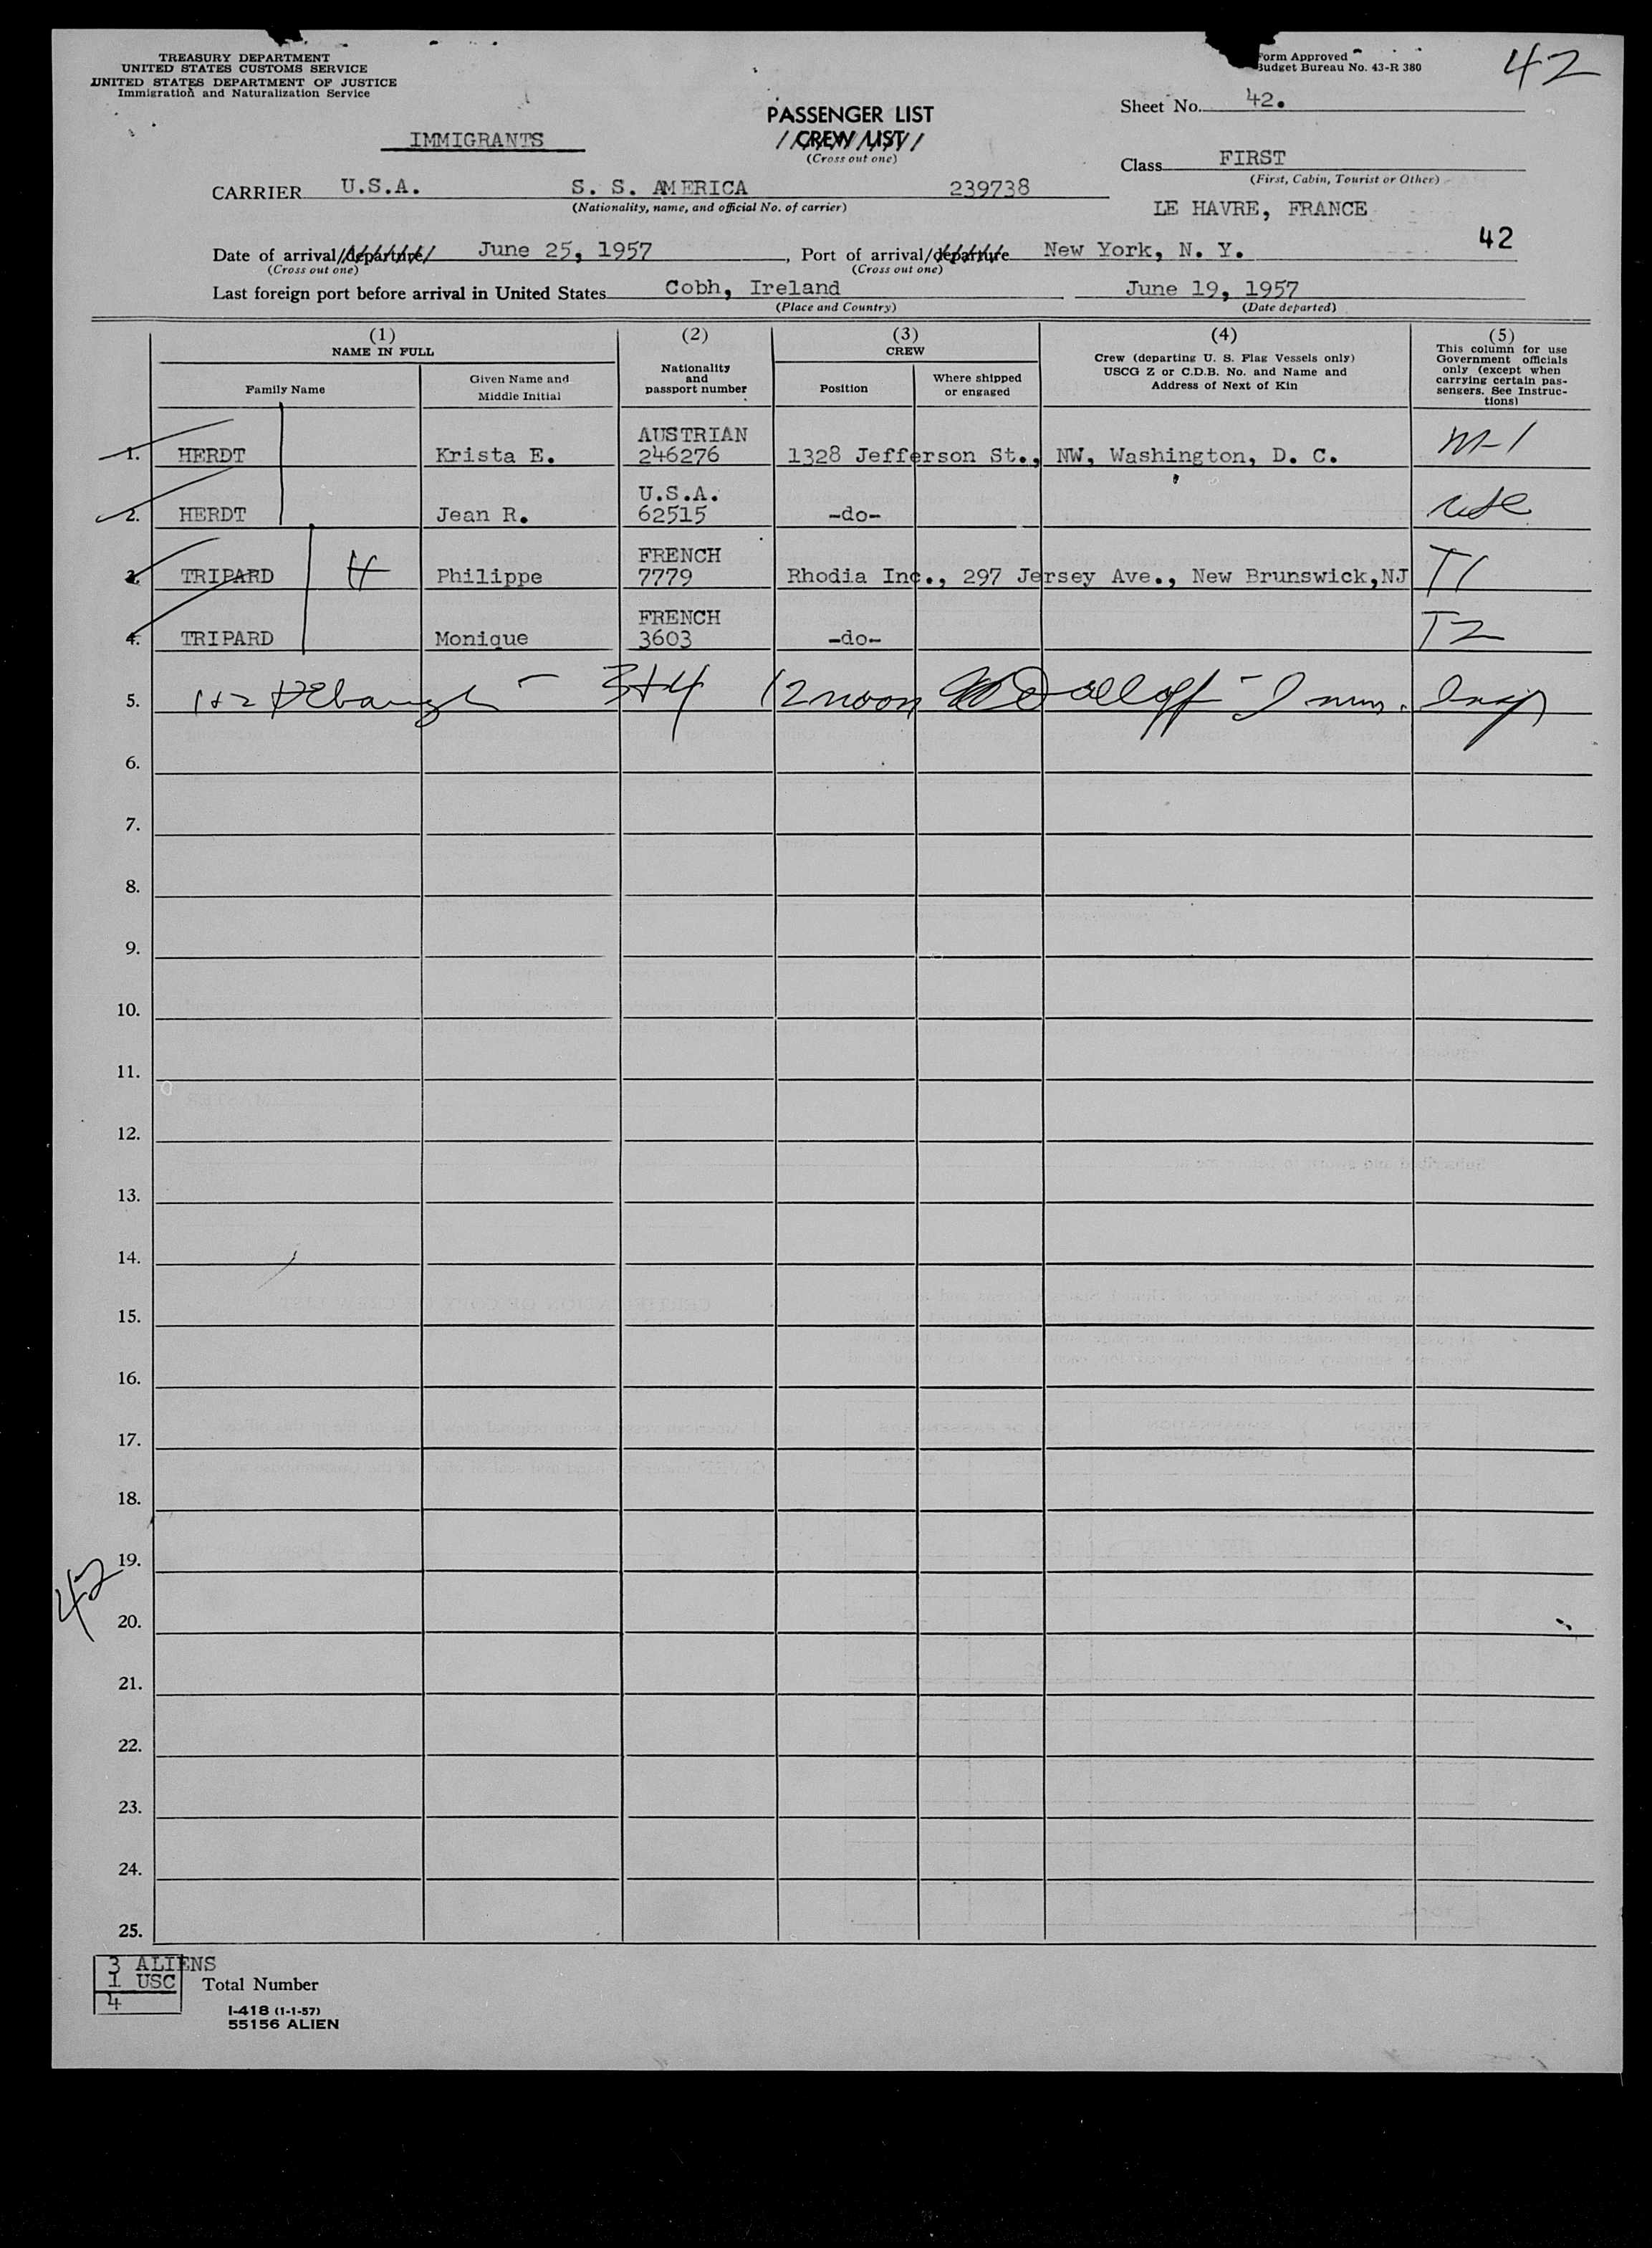 TREASURY DEPARTMENT
UNITED STATES CUSTOMS SERVICE
UNITED STATES DEPARTMENT OF JUSTICE
Immigration and Naturalization Service
Form Approved
Budget Bureau No. 43-R 380
42
Sheet No. 42.
PASSENGER LIST
IMMIGRANTS
CREW LIST
(Cross out one)
Class FIRST
(First, Cabin, Tourist or Other)
CARRIER U.S.A. S. S. AMERICA 239738
(Nationality, name, and official No. of carrier)
LE HAVRE, FRANCE
42
Date of arrival/departure June 25, 1957, Port of arrival/departure New York, N. Y.
(Cross out one) (Cross out one)
Last foreign port before arrival in United States Cobh, Ireland June 19, 1957
(Place and Country) (Date departed)
(1) (2) (3) (4) (5)
NAME IN FULL
Family Name
Given Name and Middle Initial
Nationality and passport number
CREW
Position
Where shipped or engaged
Crew (departing U. S. Flag Vessels only)
USCG Z or C.D.B. No. and Name and
Address of Next of Kin
This column for use
Government officials
only (except when
carrying certain pas-
sengers. See Instruc-
tions)
AUSTRIAN
1. HERDT Krista E. 246276 1328 Jefferson St., NW, Washington, D. C. M-1
U.S.A.
2. HERDT Jean R. 62515 -do- USC
FRENCH
3. TRIPARD H Philippe 7779 Rhodia Inc., 297 Jersey Ave., New Brunswick,NJ T1
FRENCH
4. TRIPARD Monique 3603 -do- T2
5. 1+2 3+4 12 noon all off
6.
7.
8.
9.
10.
11.
12.
13.
14.
15.
16.
17.
18.
19.
42
20.
21.
22.
23.
24.
25.
3 ALIENS
1 USC Total Number
4
I-418 (1-1-57)
55156 ALIEN